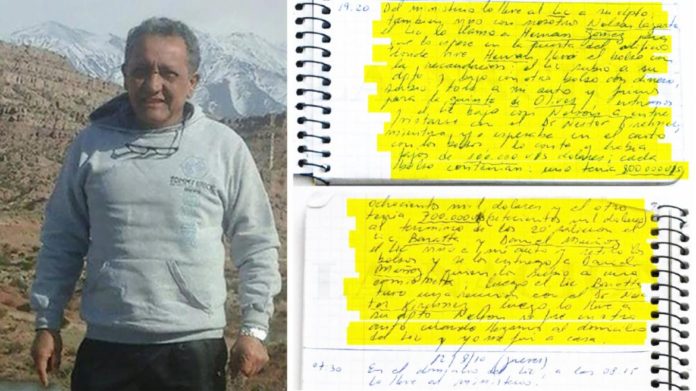 TOMMY
19.20 Del ministerio lo lleve al Lic a su dpto.
tambien vino con nosotros Nelson Lazarte
el Lic lo llamo a Hernan Gomez para
que lo espere en la puerta del
donde vive Hernan
la recaudacion el Lic subio a su
dpto y bajo con otro bolso con dinero,
a mi auto y fuimos
para la Quinta de Olivos
el Lic bajo con Nelson a entre
con el Dr Nestor Kirchner,
mientras yo esperaba en el auto
con los bolsos, lo conto y habia
fajos de 100.000 U$S dolares; cada
bolso contenian: uno tenia 800.000 U$S
ochocientos mil dolares y el otro
tenia 700.000 setecientos mil dolares
al termino de los 20' salieron el
Lic Baratta y Daniel Muñoz
el Lic
bolsos y se los entrego a Daniel
Muñoz y los subio a una
camioneta luego el Lic Baratta
tuvo una reunion con el Dr Nes-
tor Kirchner luego lo lleve a
su dpto Nelson se fue en otro
auto cuando llegamos al domicilio
del Lic y yo me fui a casa.
12/8/10 (jueves)
07.30 En el domicilio del Lic, a las 08.15
lo lleve al ministerio.